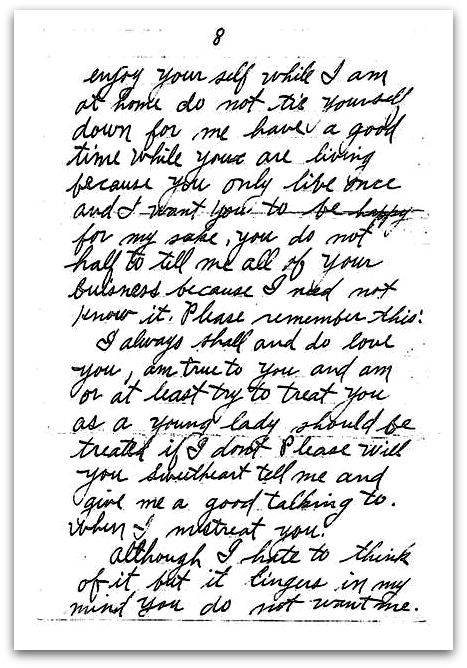 8
enjoy your self while I am
at home do not tie yourself
down for me have a good
time while your are living
because you only live once
and I want you to be happy
for my sake, you do not
half to tell me all of your
buisness because I need not
know it. Please remember this:
I always shall and do love
you, am true to you and am
or at least try to treat you
as a young lady should be
treated if I dont Please will
you sweetheart tell me and
give me a good talking to.
When I mistreat you.
Although I hate to think
of it but it lingers in my
mind you do not want me.